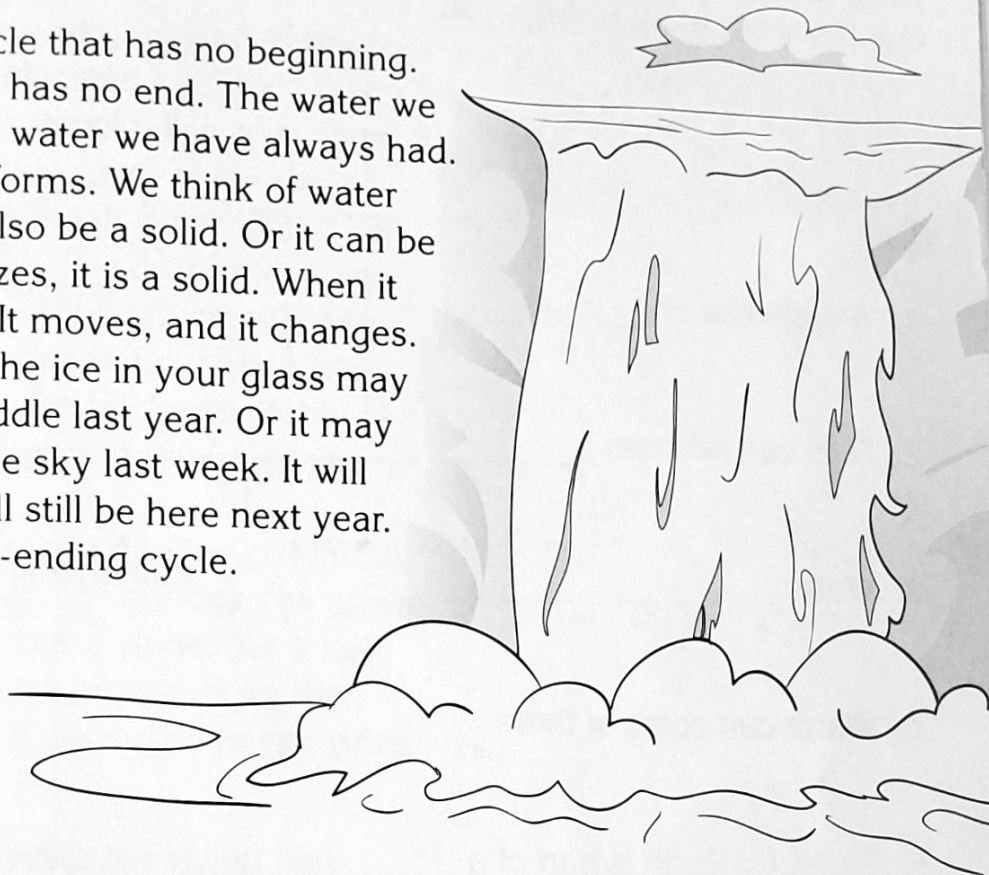 cle that has no beginning.
has no end. The water we
water we have always had.
orms. We think of water
lso be a solid. Or it can be
zes, it is a solid. When it
It moves, and it changes.
he ice in your glass may
ddle last year. Or it may
e sky last week. It will
ll still be here next year.
-ending cycle.